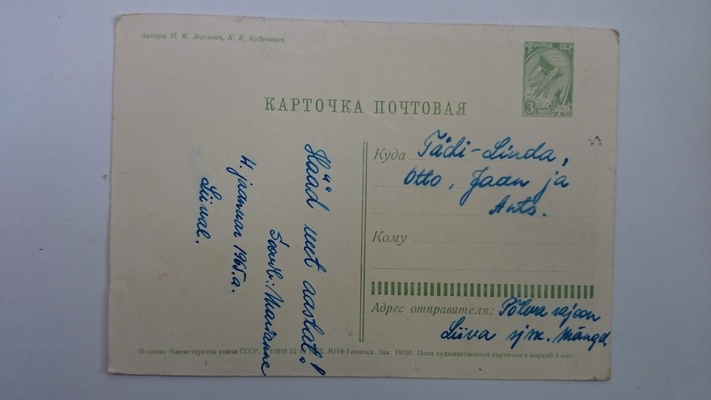 Авторы И. Я. Дергилев, К. К. Будрянцев.
ПОЧТА СССР
3
КАРТОЧКА ПОЧТОВАЯ
Куда Tädi-Linda,
Otto, Jaan ja
Ants.
Кому
Адрес отправителя: Põlva rajoon
Liiva sjk.
Издание Министерства связи СССР. МПФ Гознака. Зак. 19191. Цена художественной карточки с маркой 4 коп.
Hääd uut aastat!
Soovib: Marianne
4. jaanuar 1965.a.
Liival.